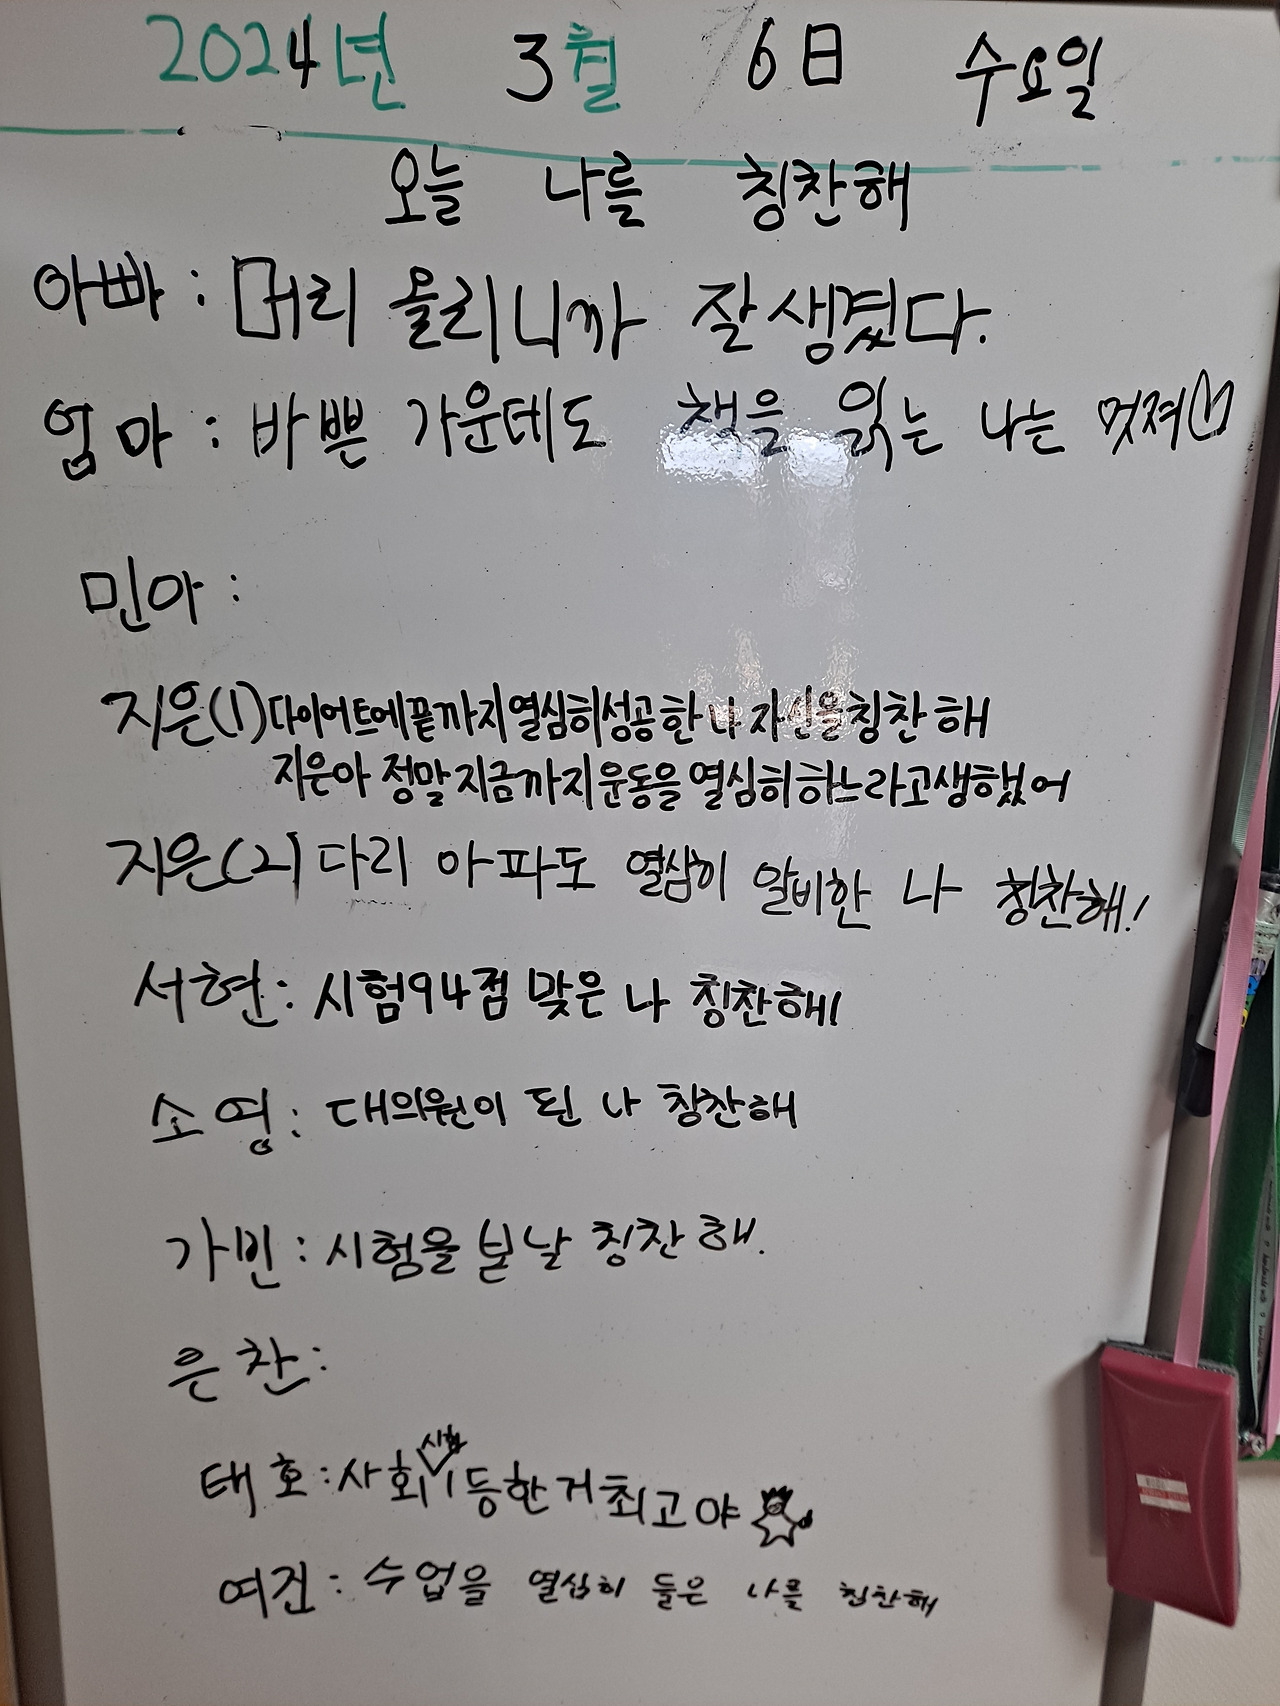 2024년 3월 6日 수요일
오늘 나를 칭찬해
아빠 : 머리 올리니까 잘생겼다.
엄마 : 바쁜 가운데도 책을 읽는 나는 멋져
민아 :
지은(1) 다이어트에끝까지열심히성공한나자신을칭찬해
지은아 정말지금까지운동을열심히하느라고생했어
지은(2) 다리 아파도 열심히 알비한 나 칭찬해!
서현 : 시험94점 맞은 나 칭찬해!
소영 : 대의원이 된 나 칭찬해
가빈 : 시험을 본날 칭찬해.
은찬 :
태호 : 사회 시험 1등한거최고야
여진 : 수업을 열심히 들은 나를 칭찬해